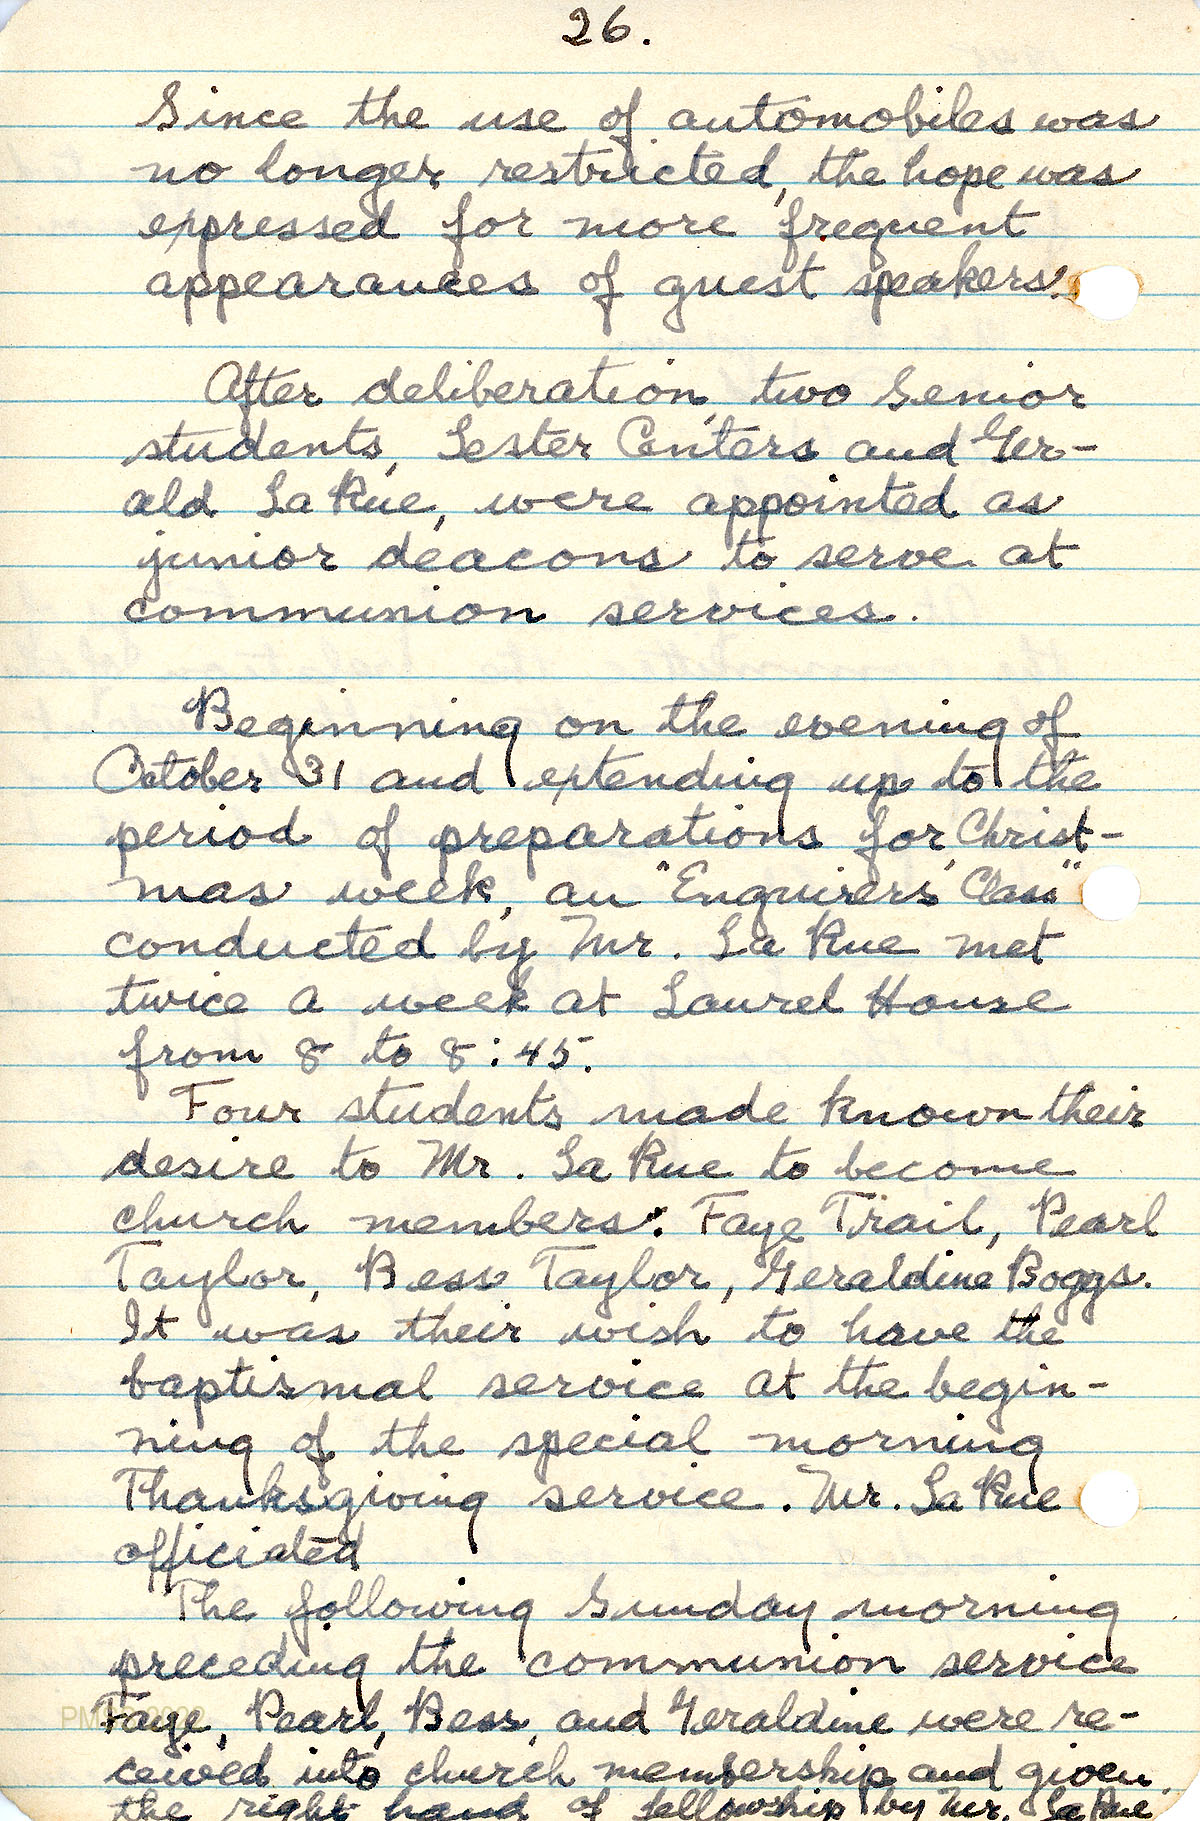 26.
Since the use of automobiles was
no longer restricted, the hope was
expressed for more frequent
appearances of guest speakers.
After deliberation, two Senior
students, Lester Centers and Ger-
ald La Rue, were appointed as
junior deacons to serve at
communion services.
Beginning on the evening of
October 31 and extending up to the
period of preparations for Christ-
mas week, an "Enquirers' Class"
conducted by Mr. La Rue met
twice a week at Laurel House
from 8 to 8:45.
Four students made known their
desire to Mr. La Rue to become
church members: Faye Trail, Pearl
Taylor, Bess Taylor, Geraldine Boggs.
It was their wish to have the
baptismal service at the begin-
ning of the special morning
Thanksgiving service. Mr. La Rue
officiated
The following Sunday morning
preceding the communion service
Faye, Pearl, Bess, and Geraldine were re-
ceived into church membership and given
the right hand of fellowship by Mr. La Rue